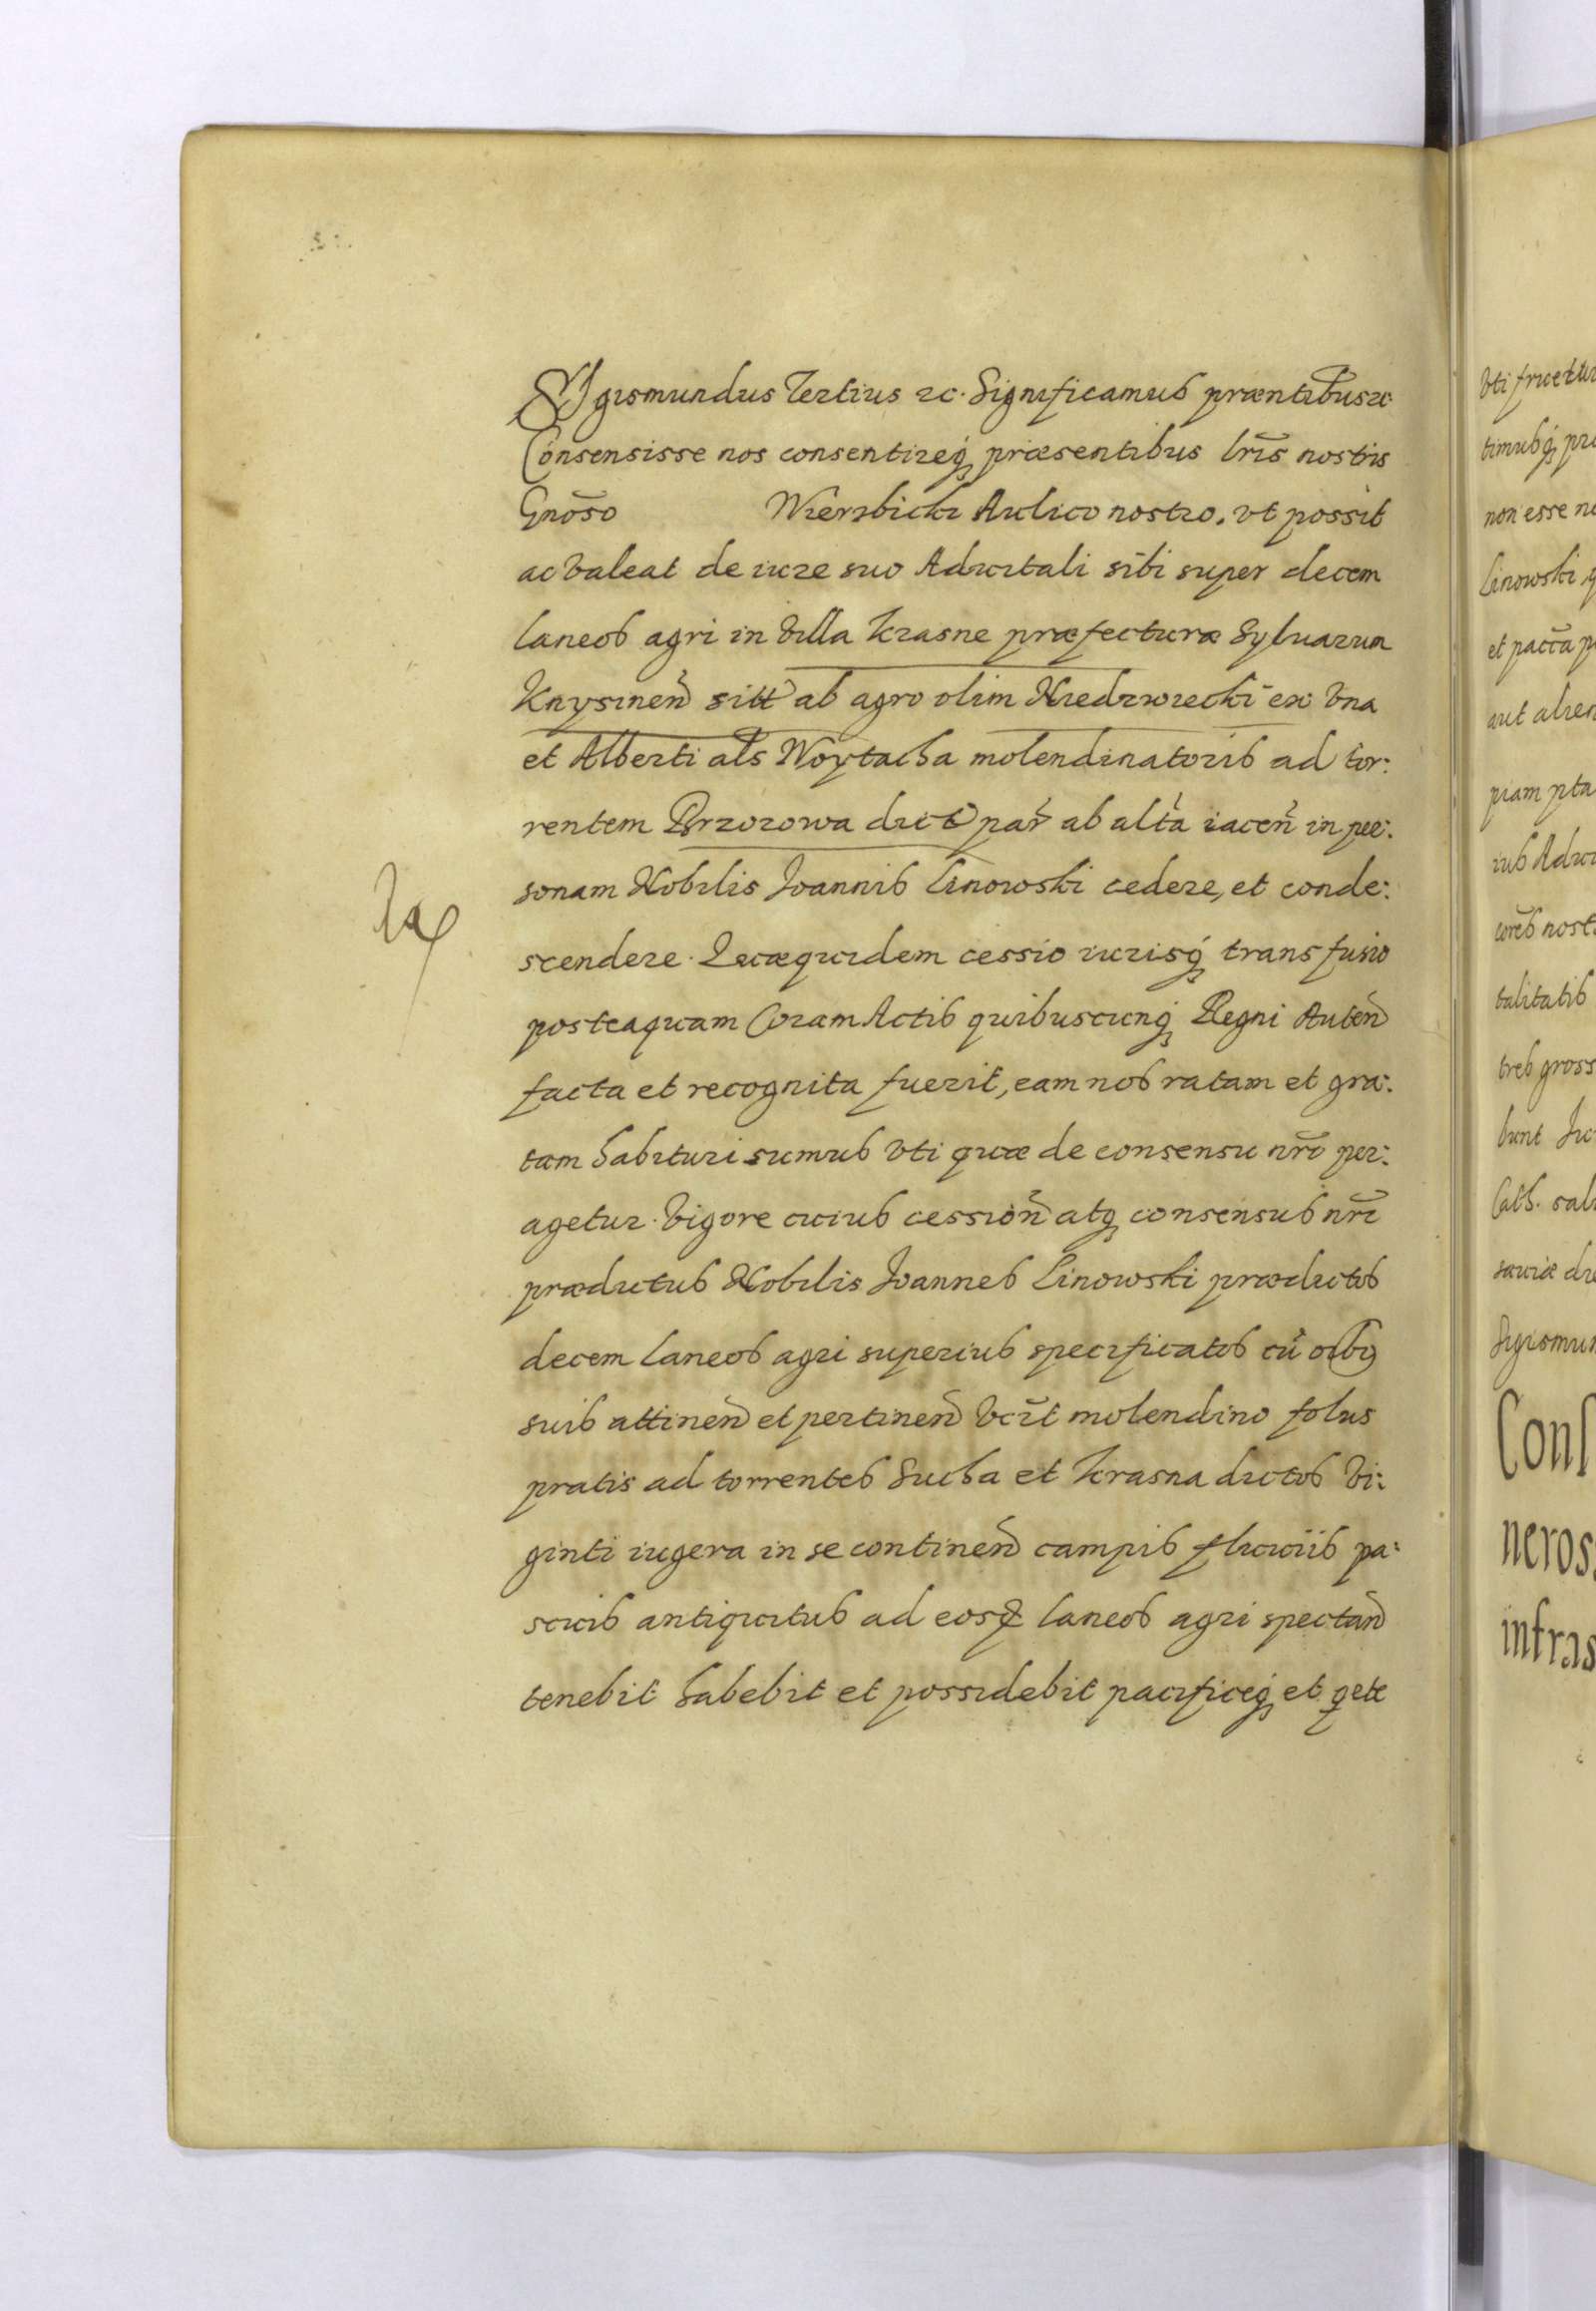 SIgismundus Tertius &c. Significamus præntibus &c.
Consensisse nos consentireq₃ præsentibus lris̃ nostris
Gnõso Wierzbicki Aulico nostro, vt possit
ac valeat de iure suo Aduitali sibi super decem
laneos agri in villa Krasne præfecturæ Syluarum
Knysinen̄ sitt̄ ab agro olim Niedzwiecki ex vna
et Alberti als Woytacha molendinatoris ad tor:
rentem Brzozowa dict̄ par̄ ab altã iacen̄ in per:
sonam Nobilis Joannis Linowski cedere, et conde:
scendere. Quæquidem cessio iurisq₃ transfusio
posteaquam Coram Actis quibuscunq₃ Regni Auten̄
facta et recognita fuerit, eam nos ratam et gra:
tam habituri sumus vti quæ de consensu nrõ per:
agetur. Vigore cuius cession̄ atq₃ consensus nrĩ
prædictus Nobilis Joannes Linowski prædictos
decem laneos agri superius specificatos cũ oĩbus
suis attinen̄ et pertinen̄ vcz̃t molendino
pratis ad torrentes Sucha et Krasna dictos vi:
ginti iugera in se continen̄ campis fluuiis pa:
scuis antiquitus ad eosq₃ laneos agri spectan̄
tenebit habebit et possidebit pacificeq₃ et qete
vti fruetur
timusq₃
non esse
Linowski
et
aut alien
piam pta
ius Adui
nost
talitatis
tres gross
bunt
Cath. sal
Sigismun
Cons
neros
infras